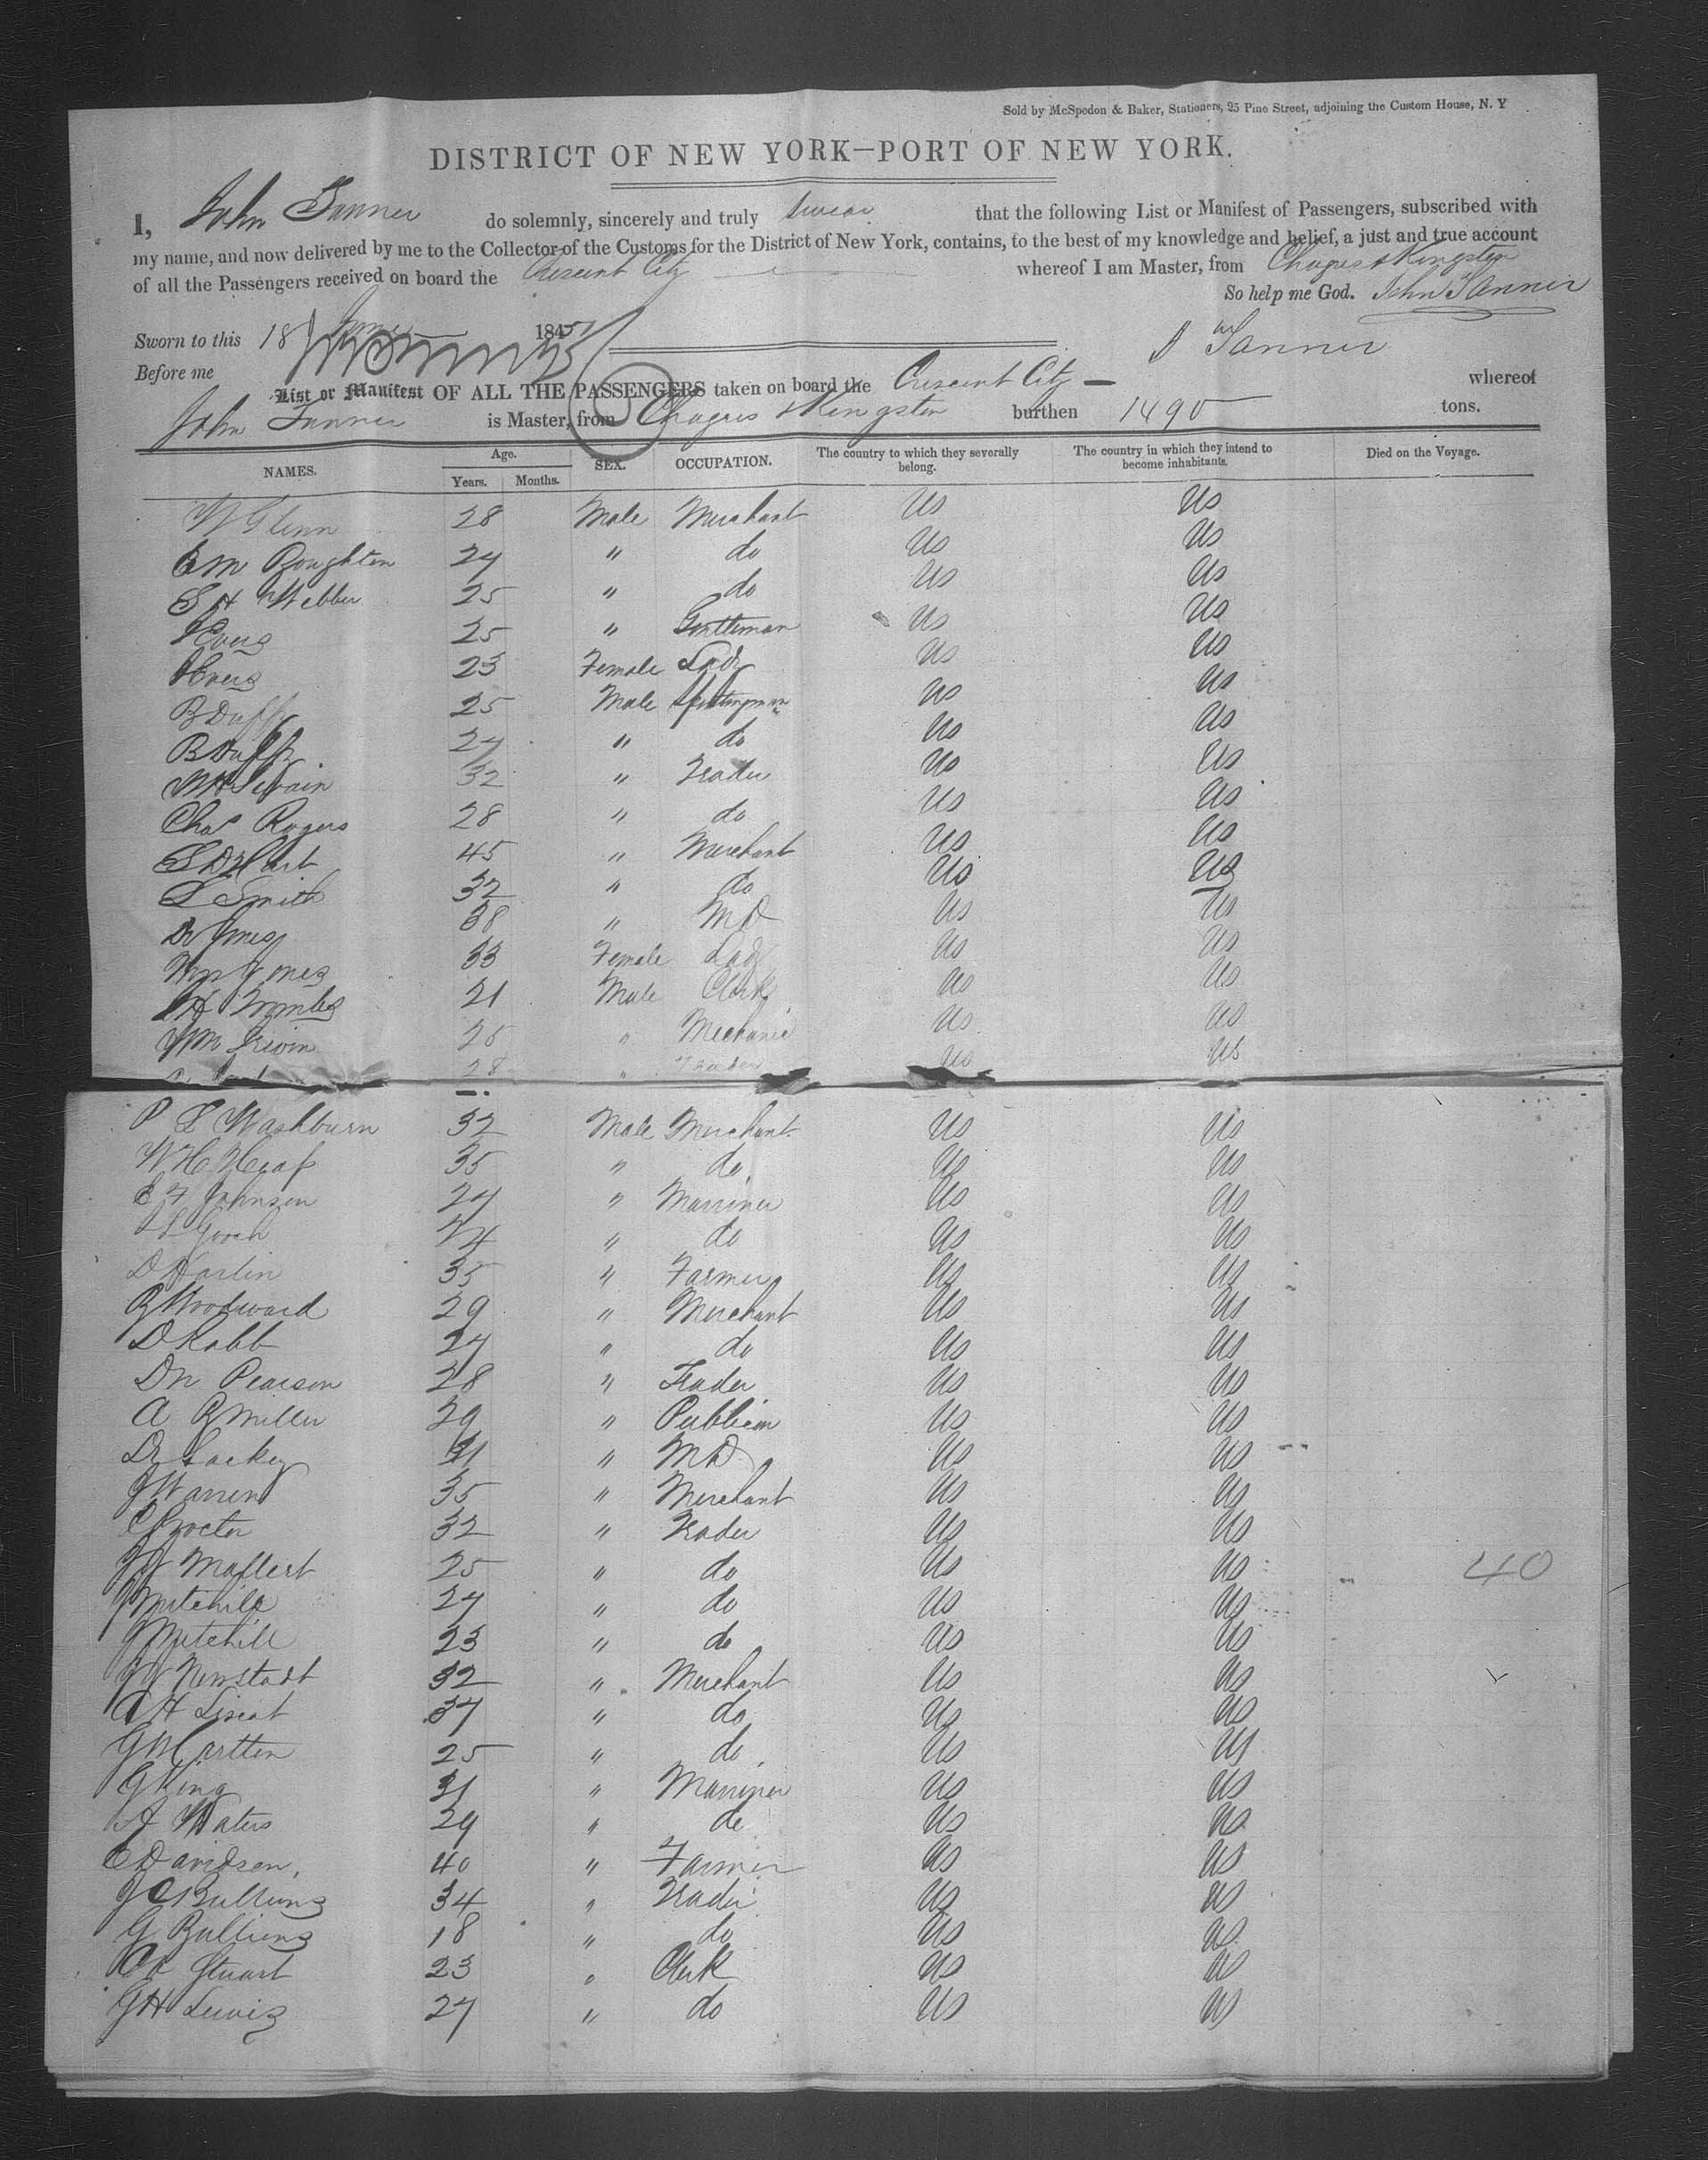 Sold by McSpedon & Baker, Stationers, 25 Pine Street, adjoining the Custom House, N. Y
DISTRICT OF NEW YORK—PORT OF NEW YORK.
I, John Tanner do solemnly, sincerely and truly swear that the following List or Manifest of Passengers, subscribed with
my name, and now delivered by me to the Collector of the Customs for the District of New York, contains, to the best of my knowledge and belief, a just and true account
of all the Passengers received on board the Crescent City whereof I am Master, from Chagres & Kingston
So help me God. John Tanner
Sworn to this 18 June 1851
Tanner
Before me
List or Manifest OF ALL THE PASSENGERS taken on board the Crescent City — whereof
John Tanner is Master, from Chagres & Kingston burthen 1490 tons.
NAMES. Age. Years. Months. SEX. OCCUPATION. The country to which they severally belong. The country in which they intend to become inhabitants. Died on the Voyage.
W Glenn 28 Male Merchant US US
E M Boughton 24 " do US US
S H Webber 25 " do US US
25 " Gentleman US US
23 Female Lady US US
B Duff 25 Male US US
B Duff 24 " do US US
W H Swain 32 " Trader US US
Chas Rogers 28 " do US US
S D Hart 45 " Merchant US US
S Smith 32 " do US US
Dr Jones 38 " MD US US
Mrs Jones 33 Female Lady US US
21 Male Clerk US US
Wm Irwin 25 " Mechanic US US
28 " Trader US US
P S Washburn 32 Male Merchant US US
W H Heap 35 " do US US
E F Johnson 24 " Marriner US US
Gooch 44 " do US US
D Harlin 35 " Farmer US US
B Woodward 29 " Merchant US US
D Rabb 24 " do US US
Dr Pearson 28 " Trader US US
A B Miller 29 " Publican US US
Dr Lackey 31 " MD US US
J Warren 35 " Merchant US US
C Procter 32 " Trader US US
25 " do US US 40
J Mitchill 24 " do US US
J Mitchill 23 " do US US
Newstadt 32 " Merchant US US
37 " do US US
G W Cartten 25 " do US US
G King 31 " Marriner US US
A Waters 29 " do US US
C Davidson, 40 " Farmer US US
J C Bulliens 34 " Trader US US
G Bulliens 18 " do US US
Stuart 23 " Clerk US US
G H Lewis 24 " do US US